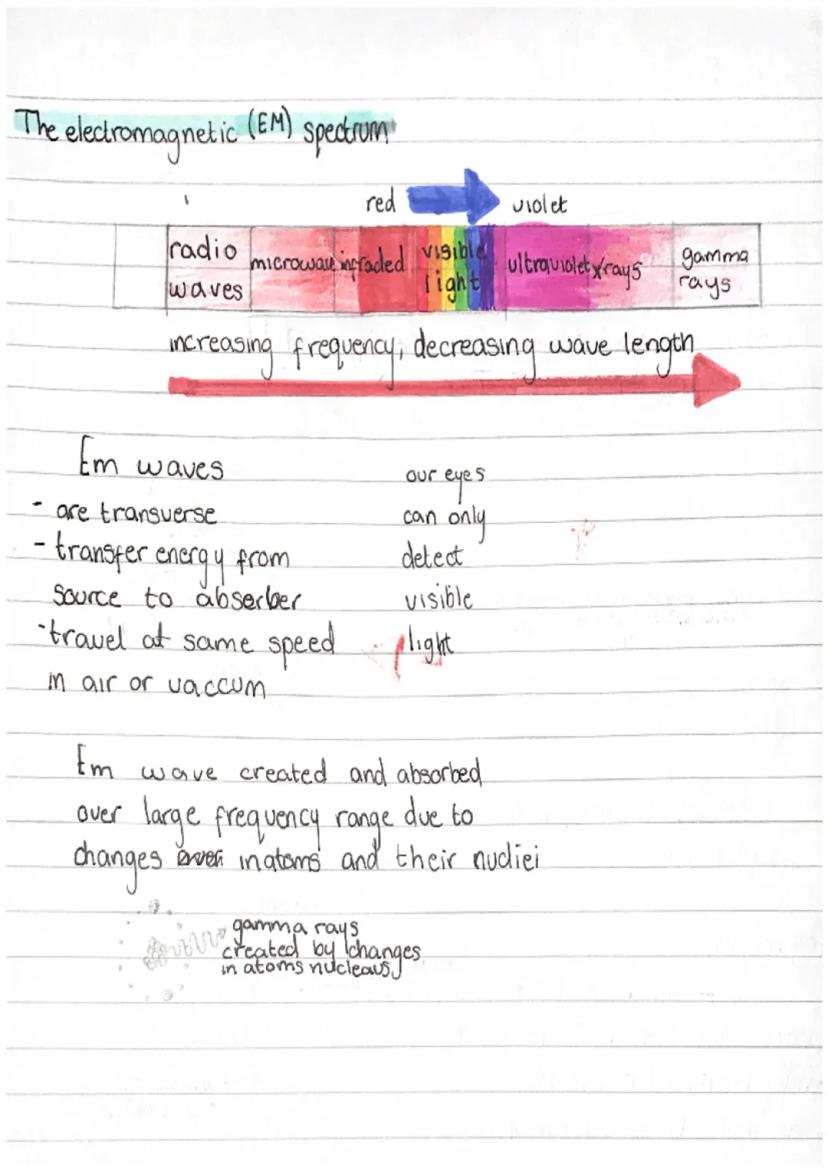 The electromagnetic (EM) spectrum
red violet
radio waves microwave infraded visible light ultraviolet x/rays gamma rays
increasing frequency, decreasing wave length
Em waves
- are transverse
- transfer energy from
source to absorber
- travel at same speed
in air or vaccum
our eyes
can only
detect
visible
light
Em wave created and absorbed
over large frequency range due to
changes in atoms and their nucliei
gamma rays
created by changes
in atoms nucleaus